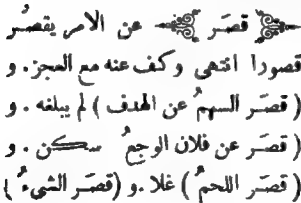 قصَر عن الامر يقصُر
قصورا انتهى وكف عنه مع العجز. و
( قصَر السهمُ عن الهدف ) لم يبلغه . و
( قصَر عن فلان الوجعُ سكن . و
( قصَر اللحمُ ) غلا .و (قصَر الشيءُ )